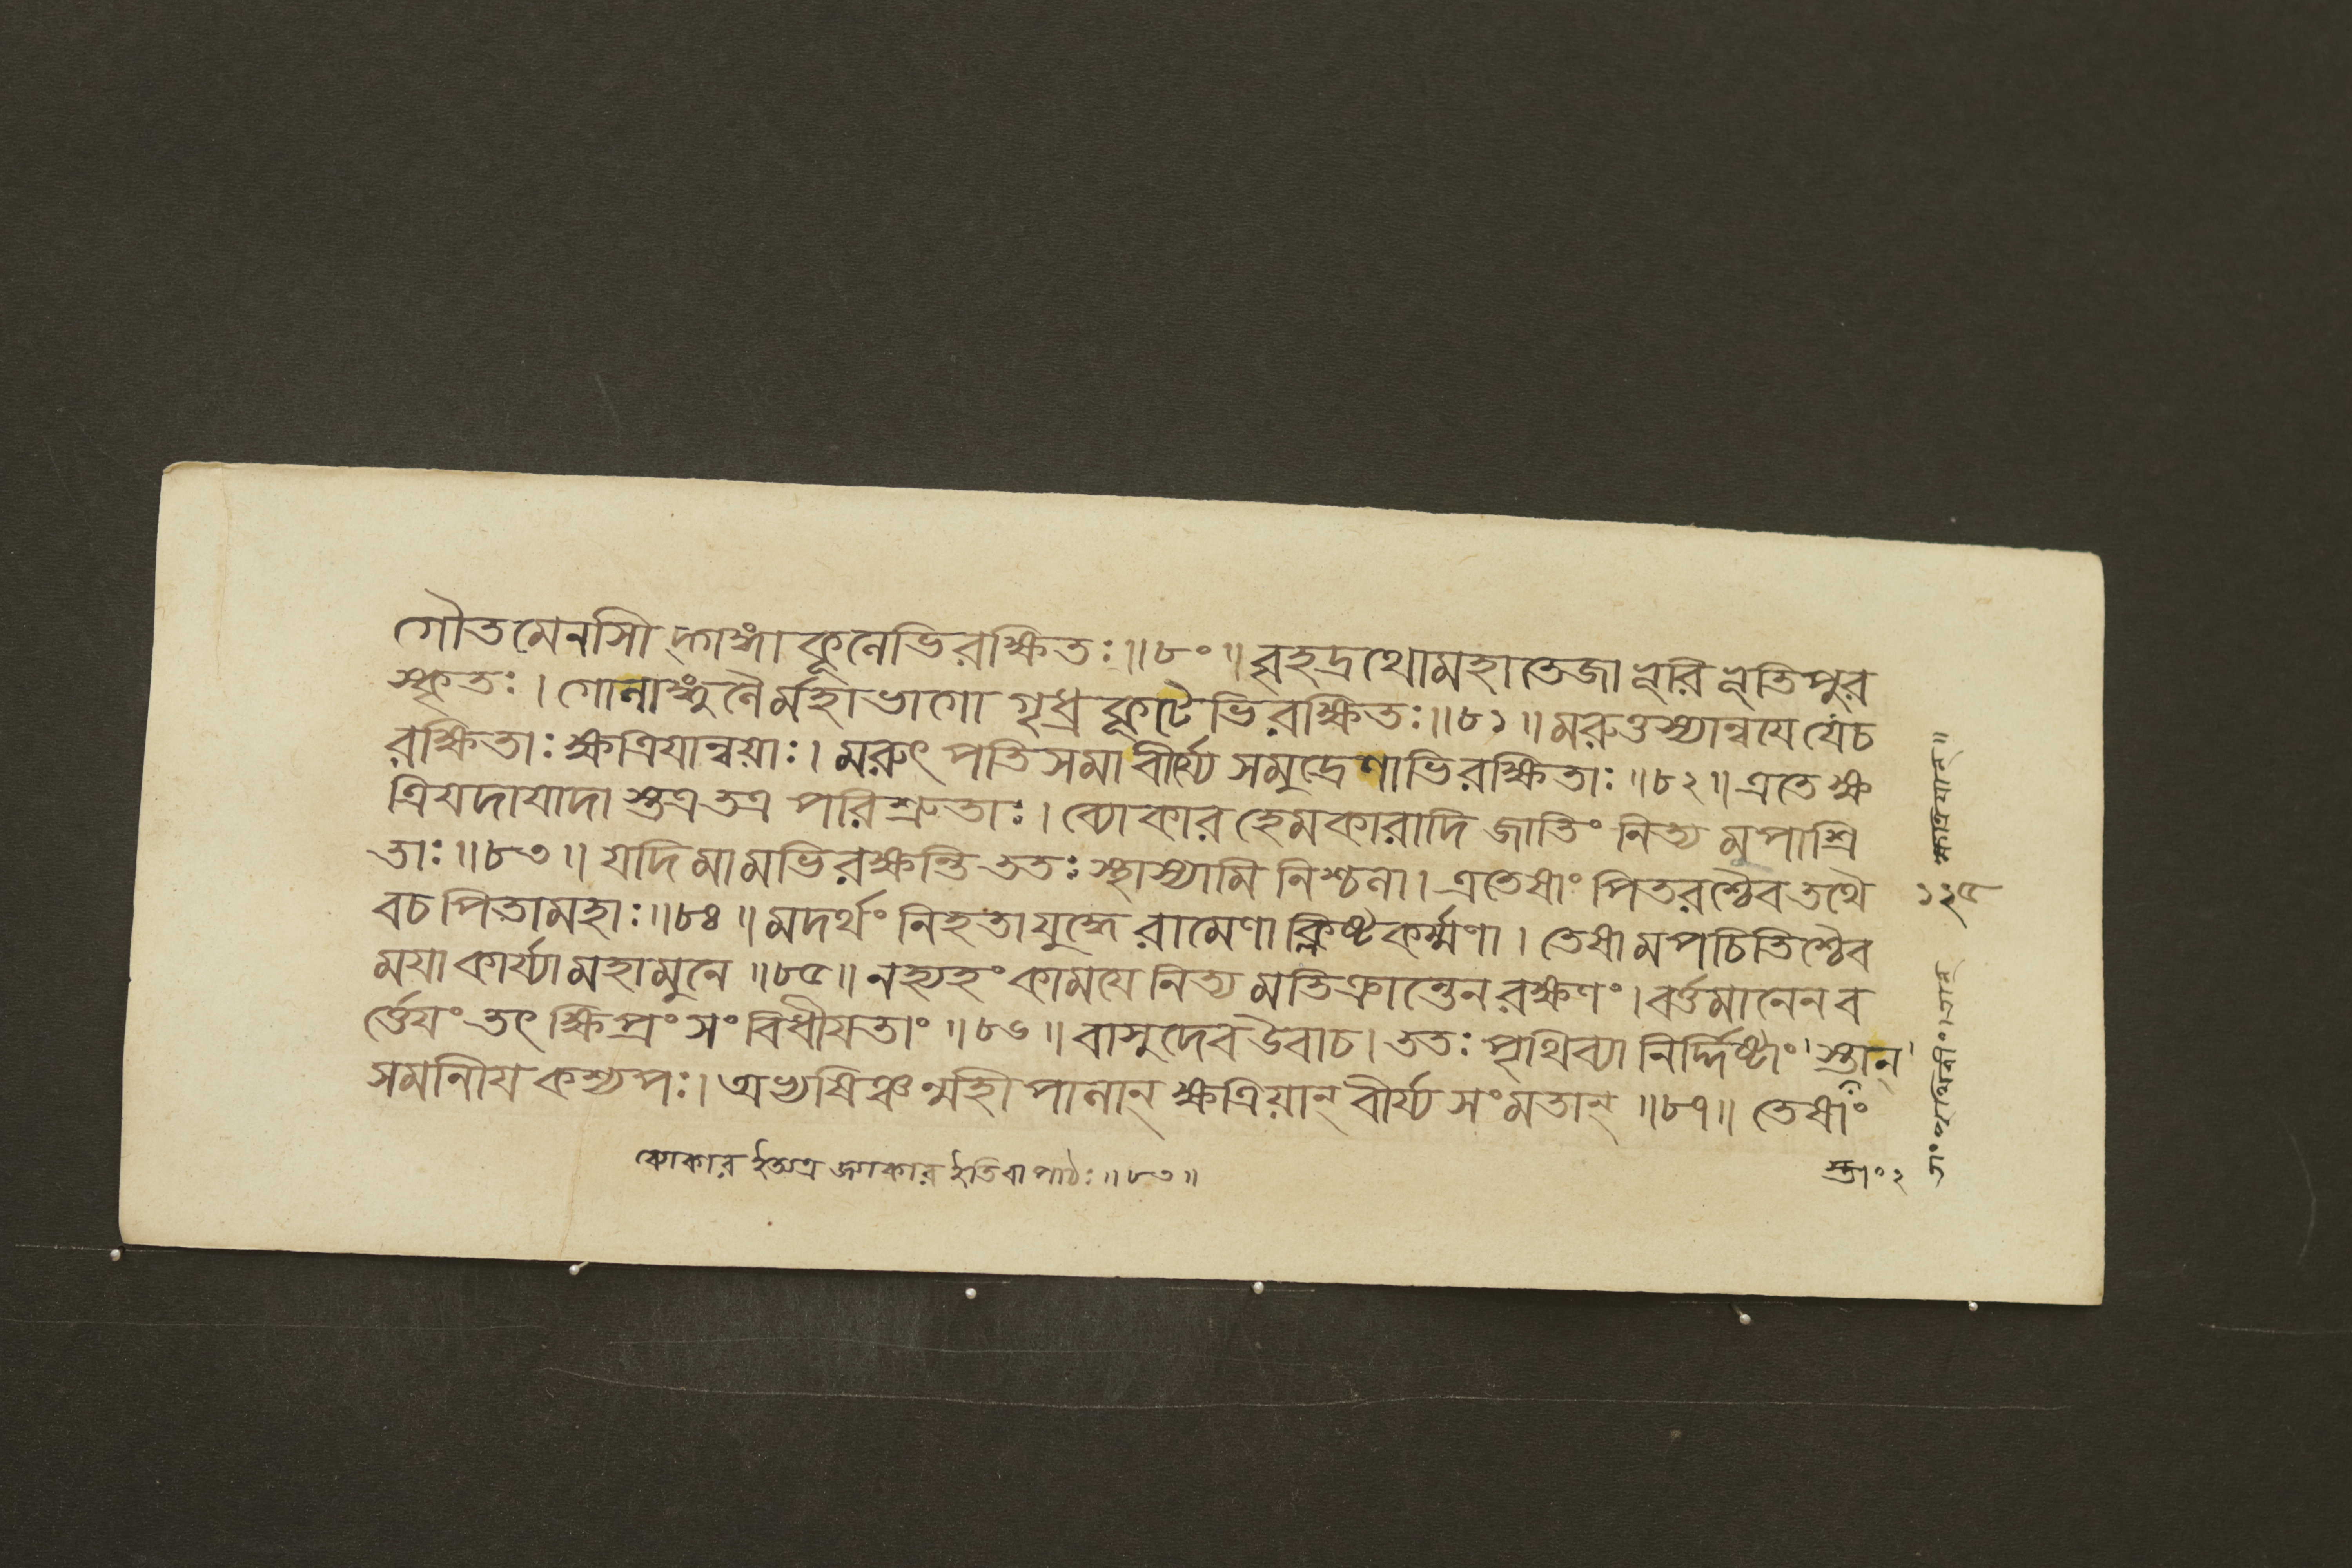 গৌতমেনাসি দ্গাঙ্গা কূলেভিরক্ষিতঃ॥৮০॥ বৃহদ্রথোমহাতেজা ভূরি ভূতিপুর
স্কৃতঃ। গোলাঙ্গূলৈর্মহাভাগো গৃধ্রকূটেভিরক্ষিতঃ॥৮১॥ মরুত্তস্যান্বযে যেচ
রক্ষিতাঃ ক্ষত্রিযান্বয়াঃ। মরুৎ পতিসমা বীর্য্যে সমুদ্রেণাভিরক্ষিতাঃ॥৮২॥ এতে ক্ষ
ত্রিযদাযাদা স্তত্রতত্র পরিশ্রুতাঃ। ব্যোকার হেমকারাদি জাতিং নিত্য মুপাশ্রি
তাঃ॥৮৩॥ যদি মামভিরক্ষন্তি ততঃ স্থাস্যামি নিশ্চলা। এতেষাং পিতরশ্চৈবতথৈ
বচ পিতামহাঃ॥৮৪॥ মদর্থং নিহতাযুদ্ধে রামেণা ক্লিষ্টকর্ম্মণা। তেষামপচিতিশ্চৈব
মযাকার্য্যামহামুনে॥৮৫॥ নহ্যহং কামযে নিত্য মতিক্রান্তেনরক্ষণং। বর্ত্তমানেনব
র্ত্তেযং তৎ ক্ষিপ্রং সং বিধীযতাং॥৮৬॥ বাসুদেব উবাচ। ততঃ পৃথিব্যা নির্দ্দিষ্টাং স্তান্
সমানীয কশ্যপঃ। অভ্যষিঞ্চন্মহীপালান্ ক্ষত্রিয়ান্ বীর্য্য সংমতান্॥৮৭॥ তেষাং
ব্যোকার ইত্যত্র জ্যাকার ইতিবা পাঠঃ॥৮৩॥
স্তাং২
১২৫